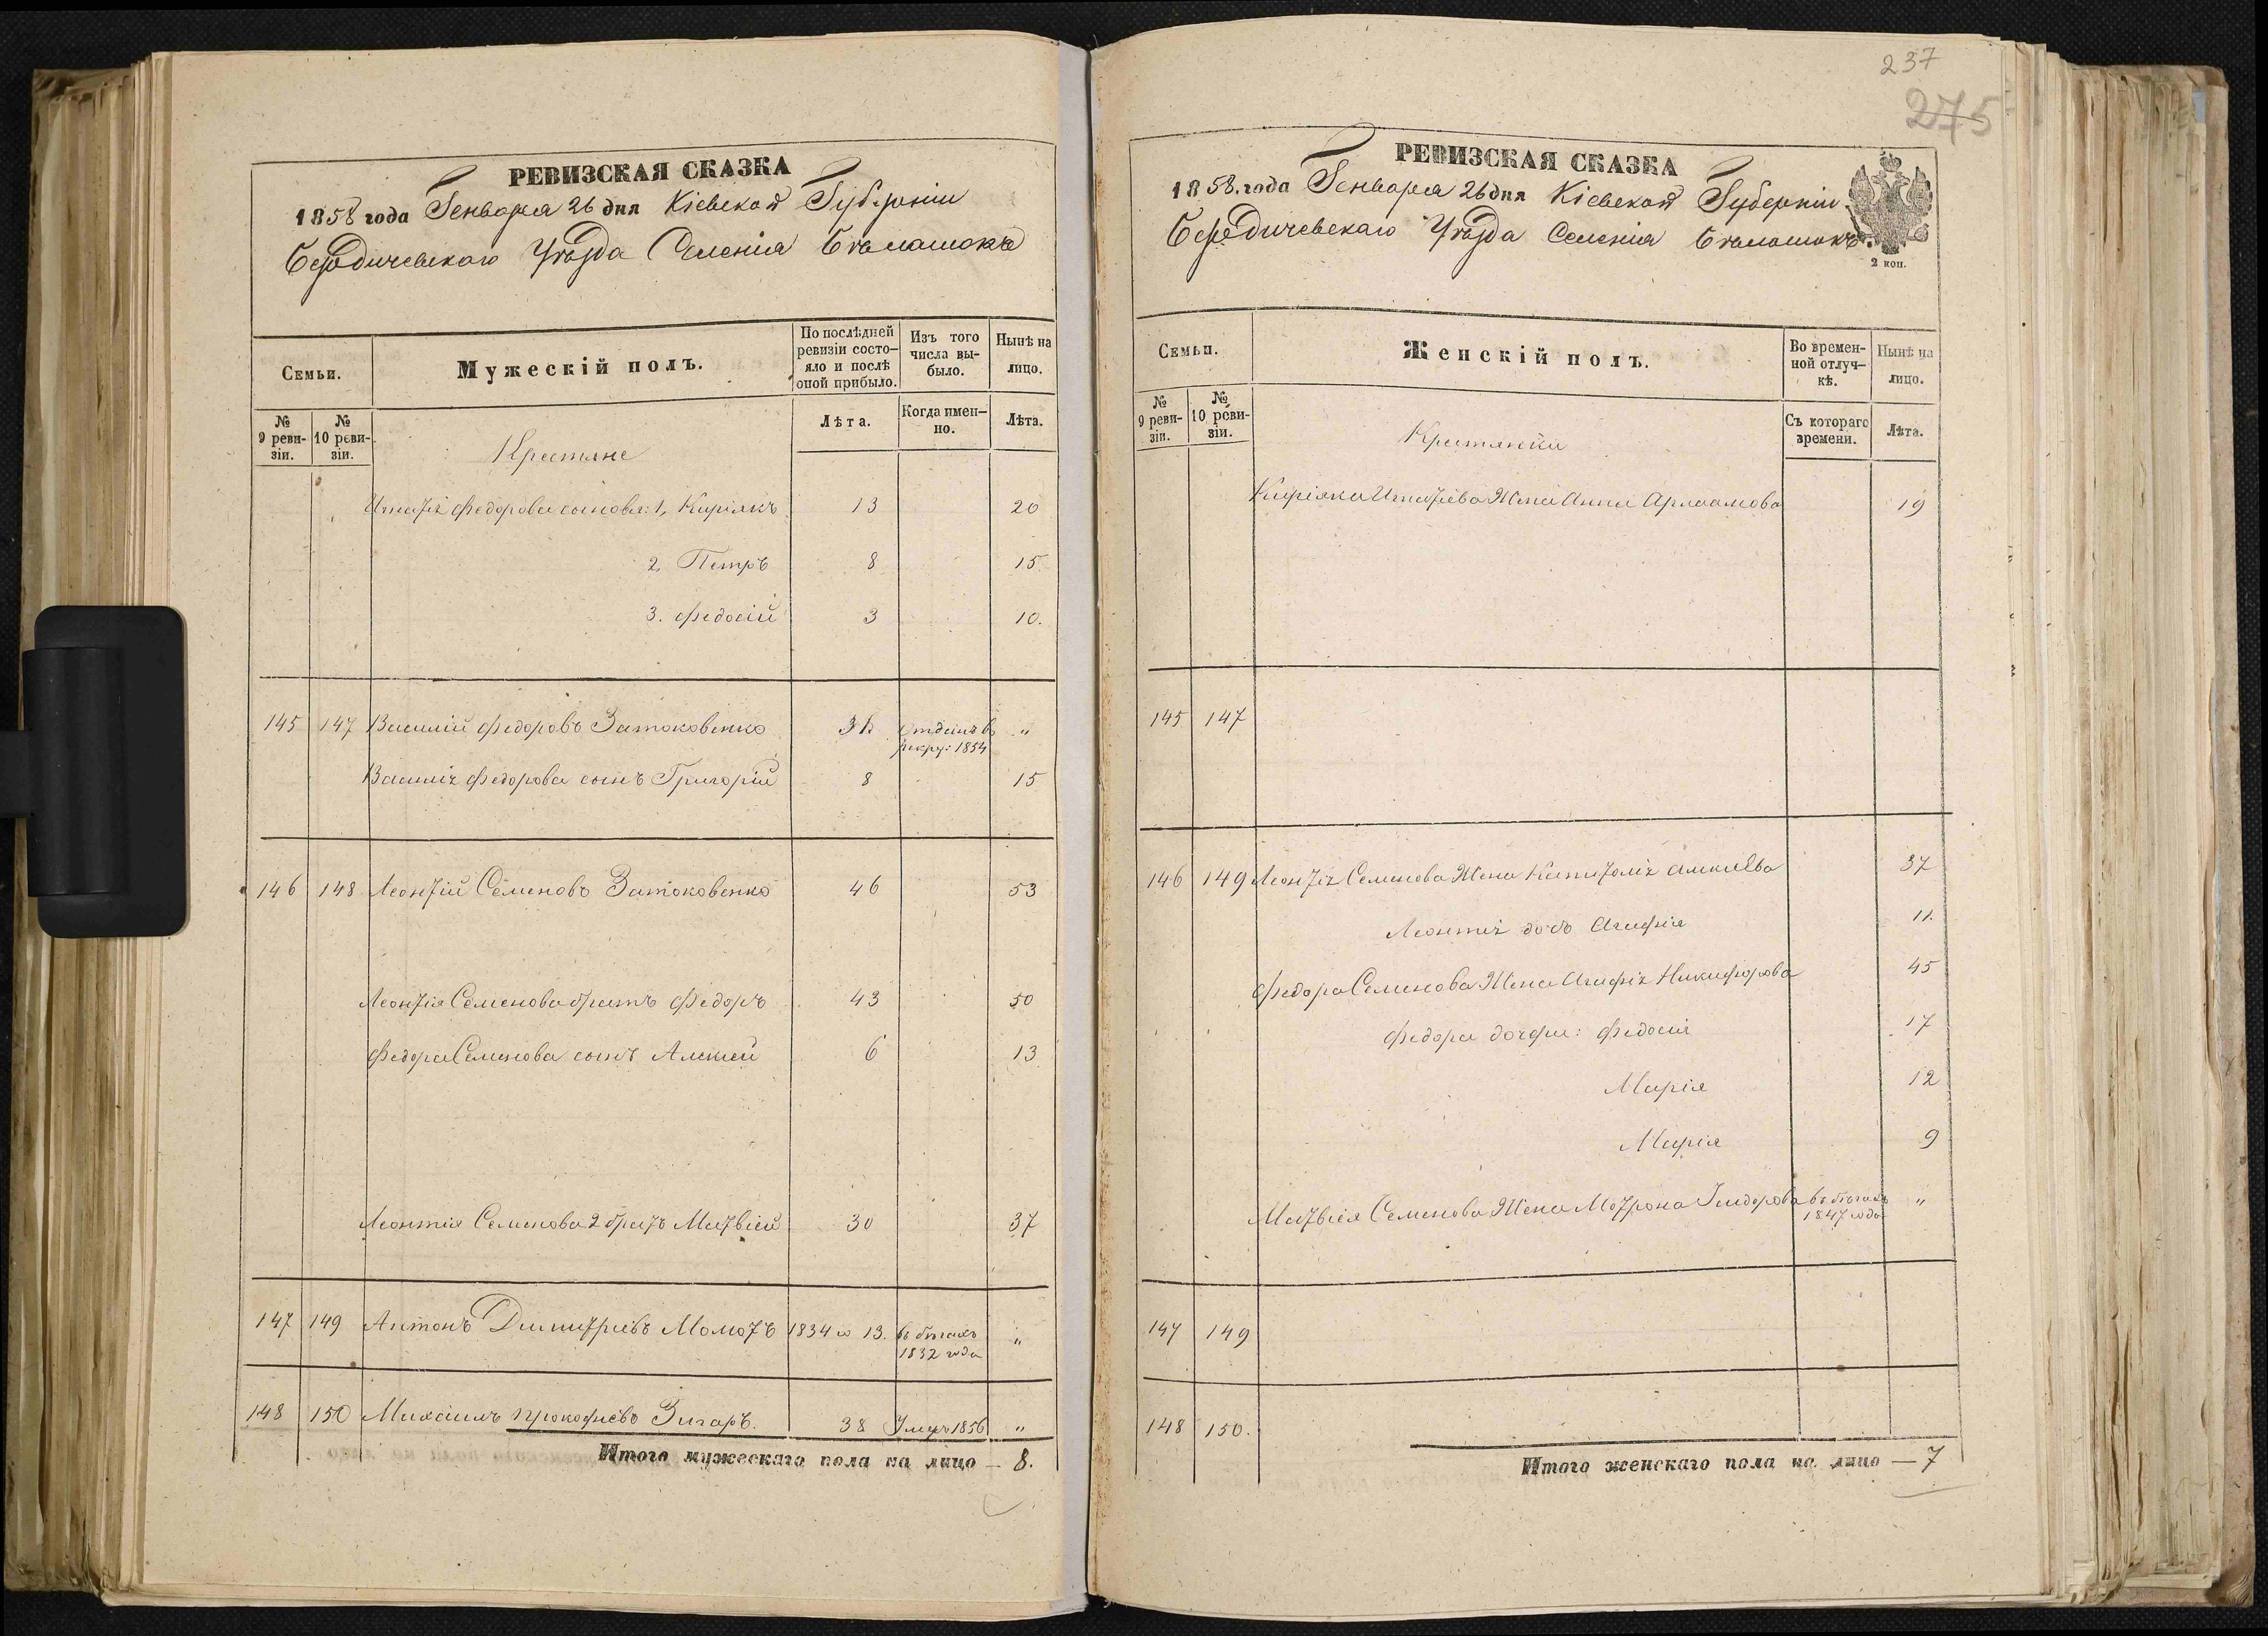 РЕВИЗСКАЯ СКАЗКА
1858 года Генваря 26 дня Кіевской Губерніи
Бердичевскаго Уѣзда Селенія Бѣлашокъ
Семьи.
Мужескій полъ.
По послѣдней ревизіи состо-
яло и послѣ
оной прибыло.
Изъ того
числа вы-
было.
Нынѣ на
лицо.
№
9 реви-
зіи.
№
10 реви-
зіи.
Лѣта.
Когда имен-
но.
Лѣта.
Крестьяне
Федорова сыновья: 1, Киріякъ 13 20
2, Петръ 8 15
3. Федосій 3 10.
145 147 Василій Федоровъ Затоковенко Отданъ въ "
рекру: 1854
Василія Федорова сынъ Григорій 8 15
146 148 Леонтій Семеновъ Затоковенко 46 53
Леонтія Семенова братъ Федоръ 43 50
Федора Семенова сынъ Алексѣй 6 13
Леонтія Семенова 2 братъ Матвѣй 30 37
147 149 Антонъ Димитріевъ Момотъ 1834 13. въ бѣгахъ "
1832 года
148 150 Михаилъ Прокофіевъ 38 Умеръ 1856 "
Итого мужескаго пола на лицо — 8.
237
275
РЕВИЗСКАЯ СКАЗКА
1858. года Генваря 26 дня Кіевской Губерніи
Бердичевскаго Уѣзда Селенія Бѣлашокъ.
2 коп.
Семьи.
Женскій полъ.
Во времен-
ной отлуч-
кѣ.
Нынѣ на
лицо.
№
9 реви-
зіи.
№
10 реви-
зіи.
Съ котораго
времени.
Лѣта.
Крестьянки
Киріяка Жена Анна 19
145 147
146 149 Леонтія Семенова Жена 37
Леонтія дочь Агафія 11.
Федора Семенова Жена Агафія Никифорова 45
Федора дочери: Федосія 17
Марія 12
Марія 9
Матвѣя Семенова Жена Мотрона въ бѣгахъ "
1847 года
147 149
148 150.
Итого женскаго пола на лицо — 7